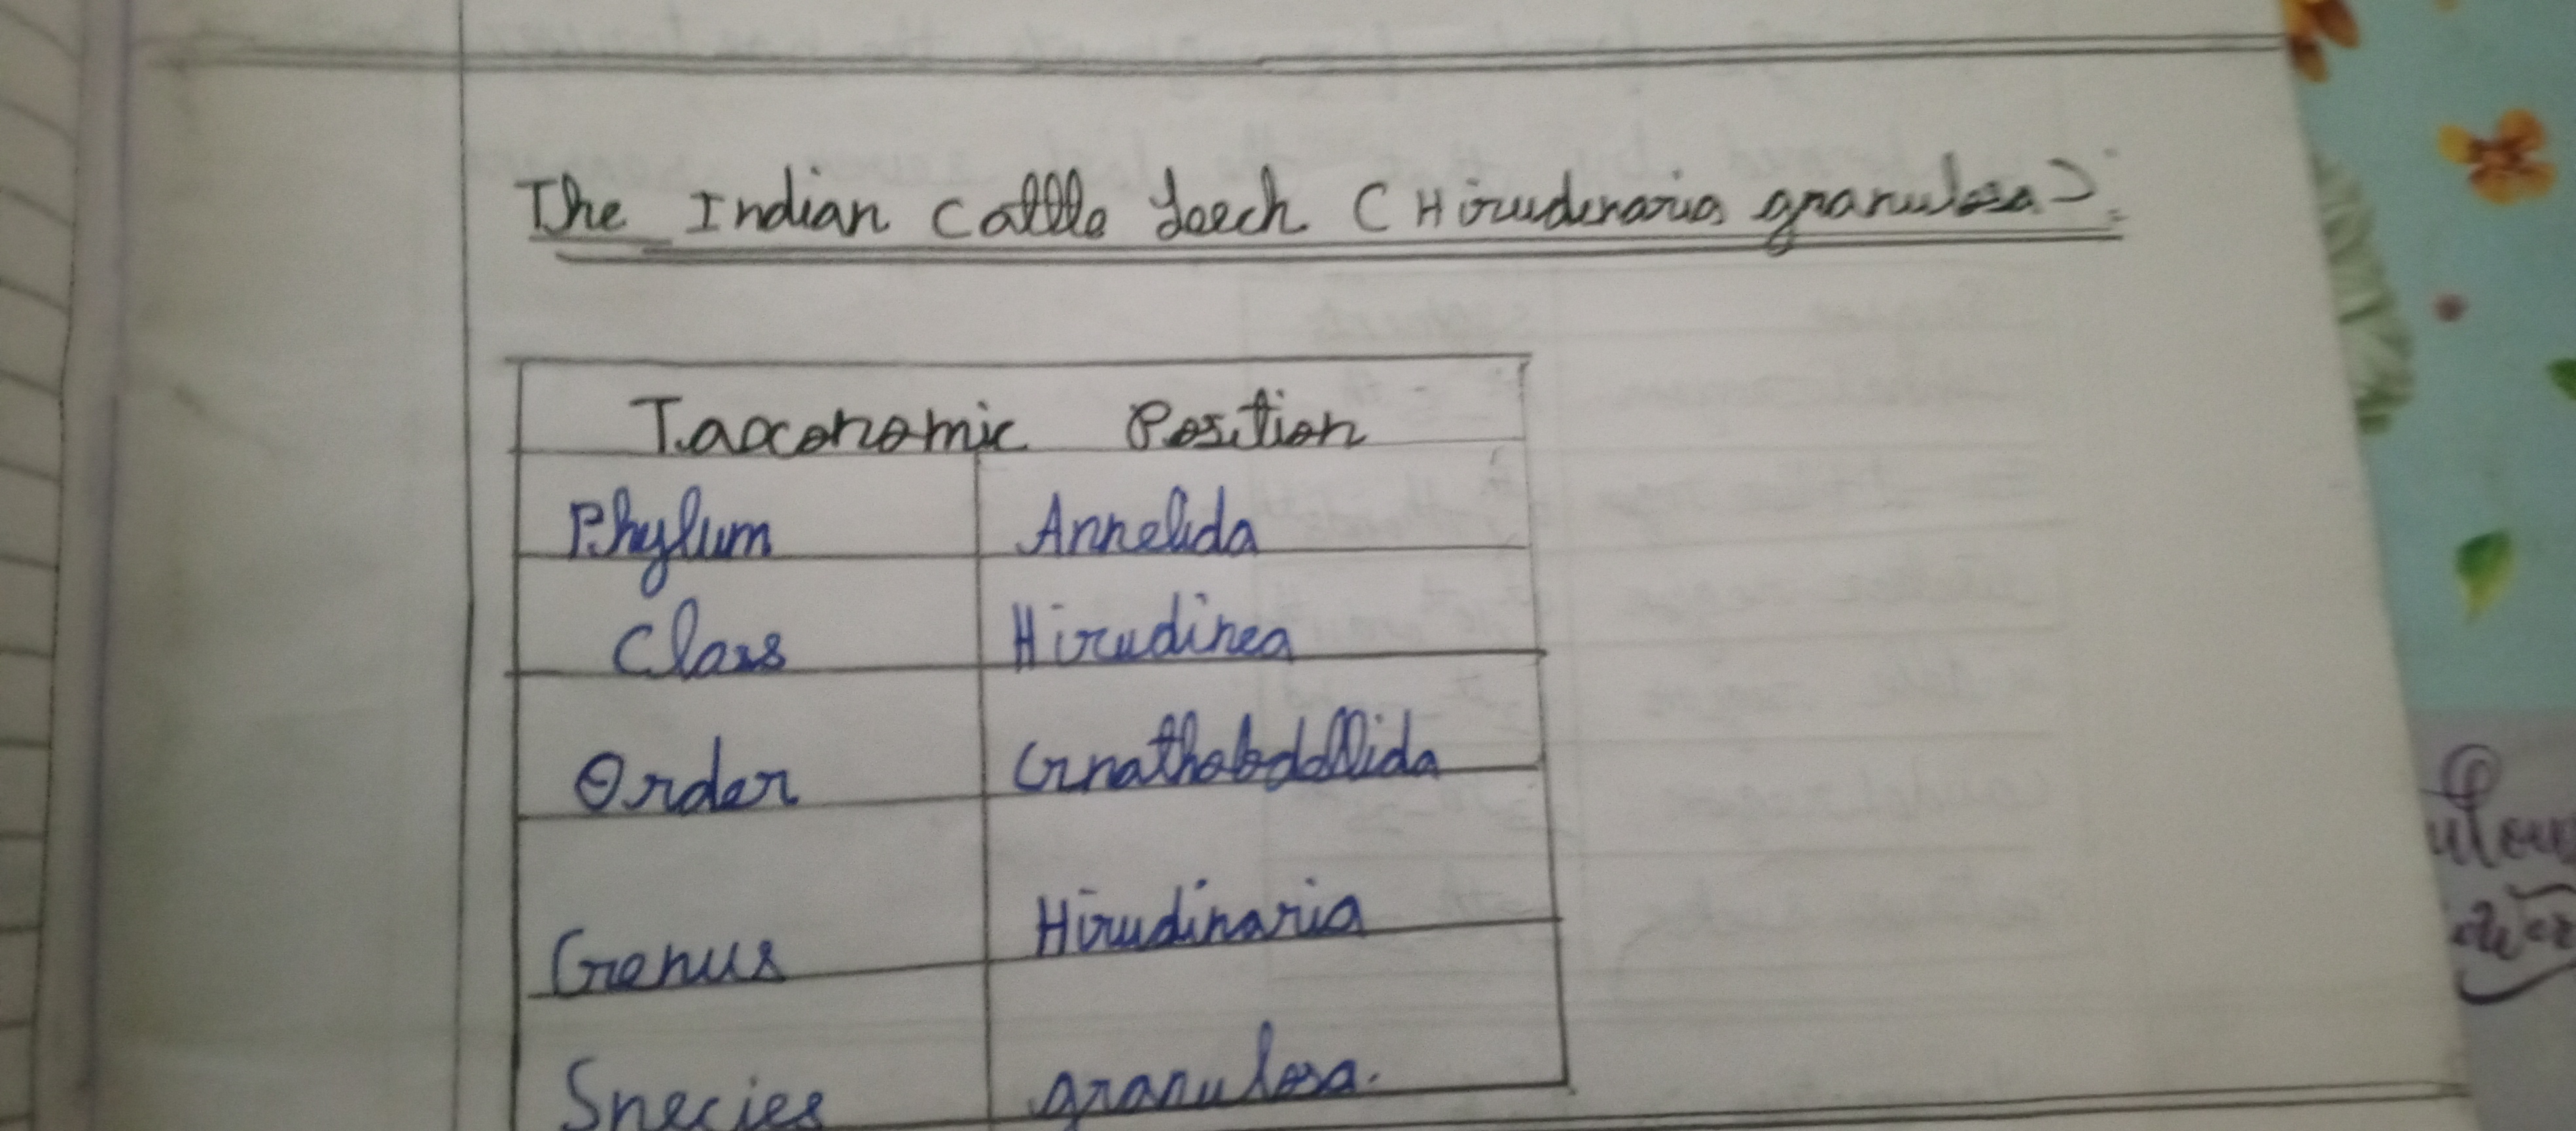 The Indian Cattle Leech (Hirudinaria granulosa):
Taxonomic Position
Phylum Annelida
Class Hirudinea
Order Gnathobdellida
Genus Hirudinaria
Species granulosa.